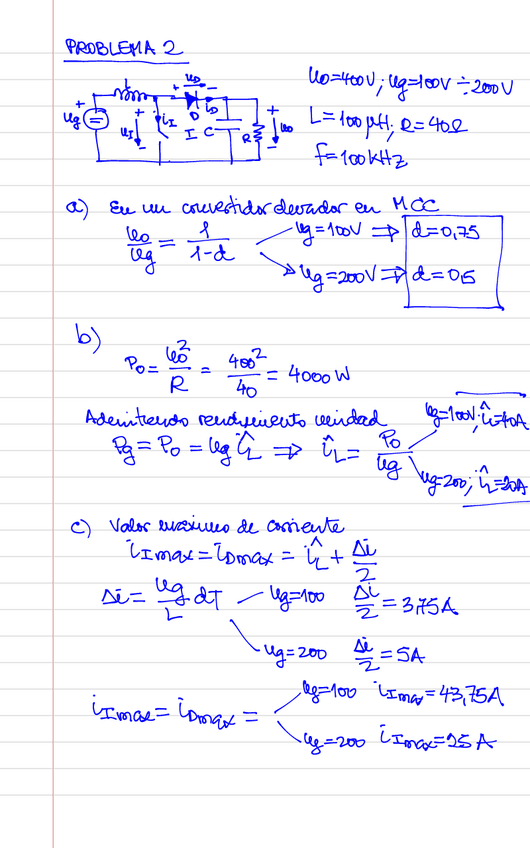 PROBLEMA 2
L
+ uD −
D iD
+
ug
+ uI −
iI
I C
R
+ uo −
uo=400V; ug=100V ÷ 200V
L=100µH; R=40Ω
f=100kHz
a) En un convertidor elevador en MCC
uo/ug = 1/(1-d)
ug=100V ⇒ d=0,75
ug=200V ⇒ d=0,5
b)
Po = uo²/R = 400²/40 = 4000W
Admitiendo rendimiento unidad
Pg = Po = ug îL ⇒ îL = Po/ug
ug=100V; îL=40A
ug=200; îL=20A
c) Valor máximo de corriente
iImax = iDmax = îL + Δi/2
Δi = ug/L dT
ug=100 Δi/2 = 3,75A
ug=200 Δi/2 = 5A
iImax = iDmax =
ug=100 iImax = 43,75A
ug=200 iImax=25A